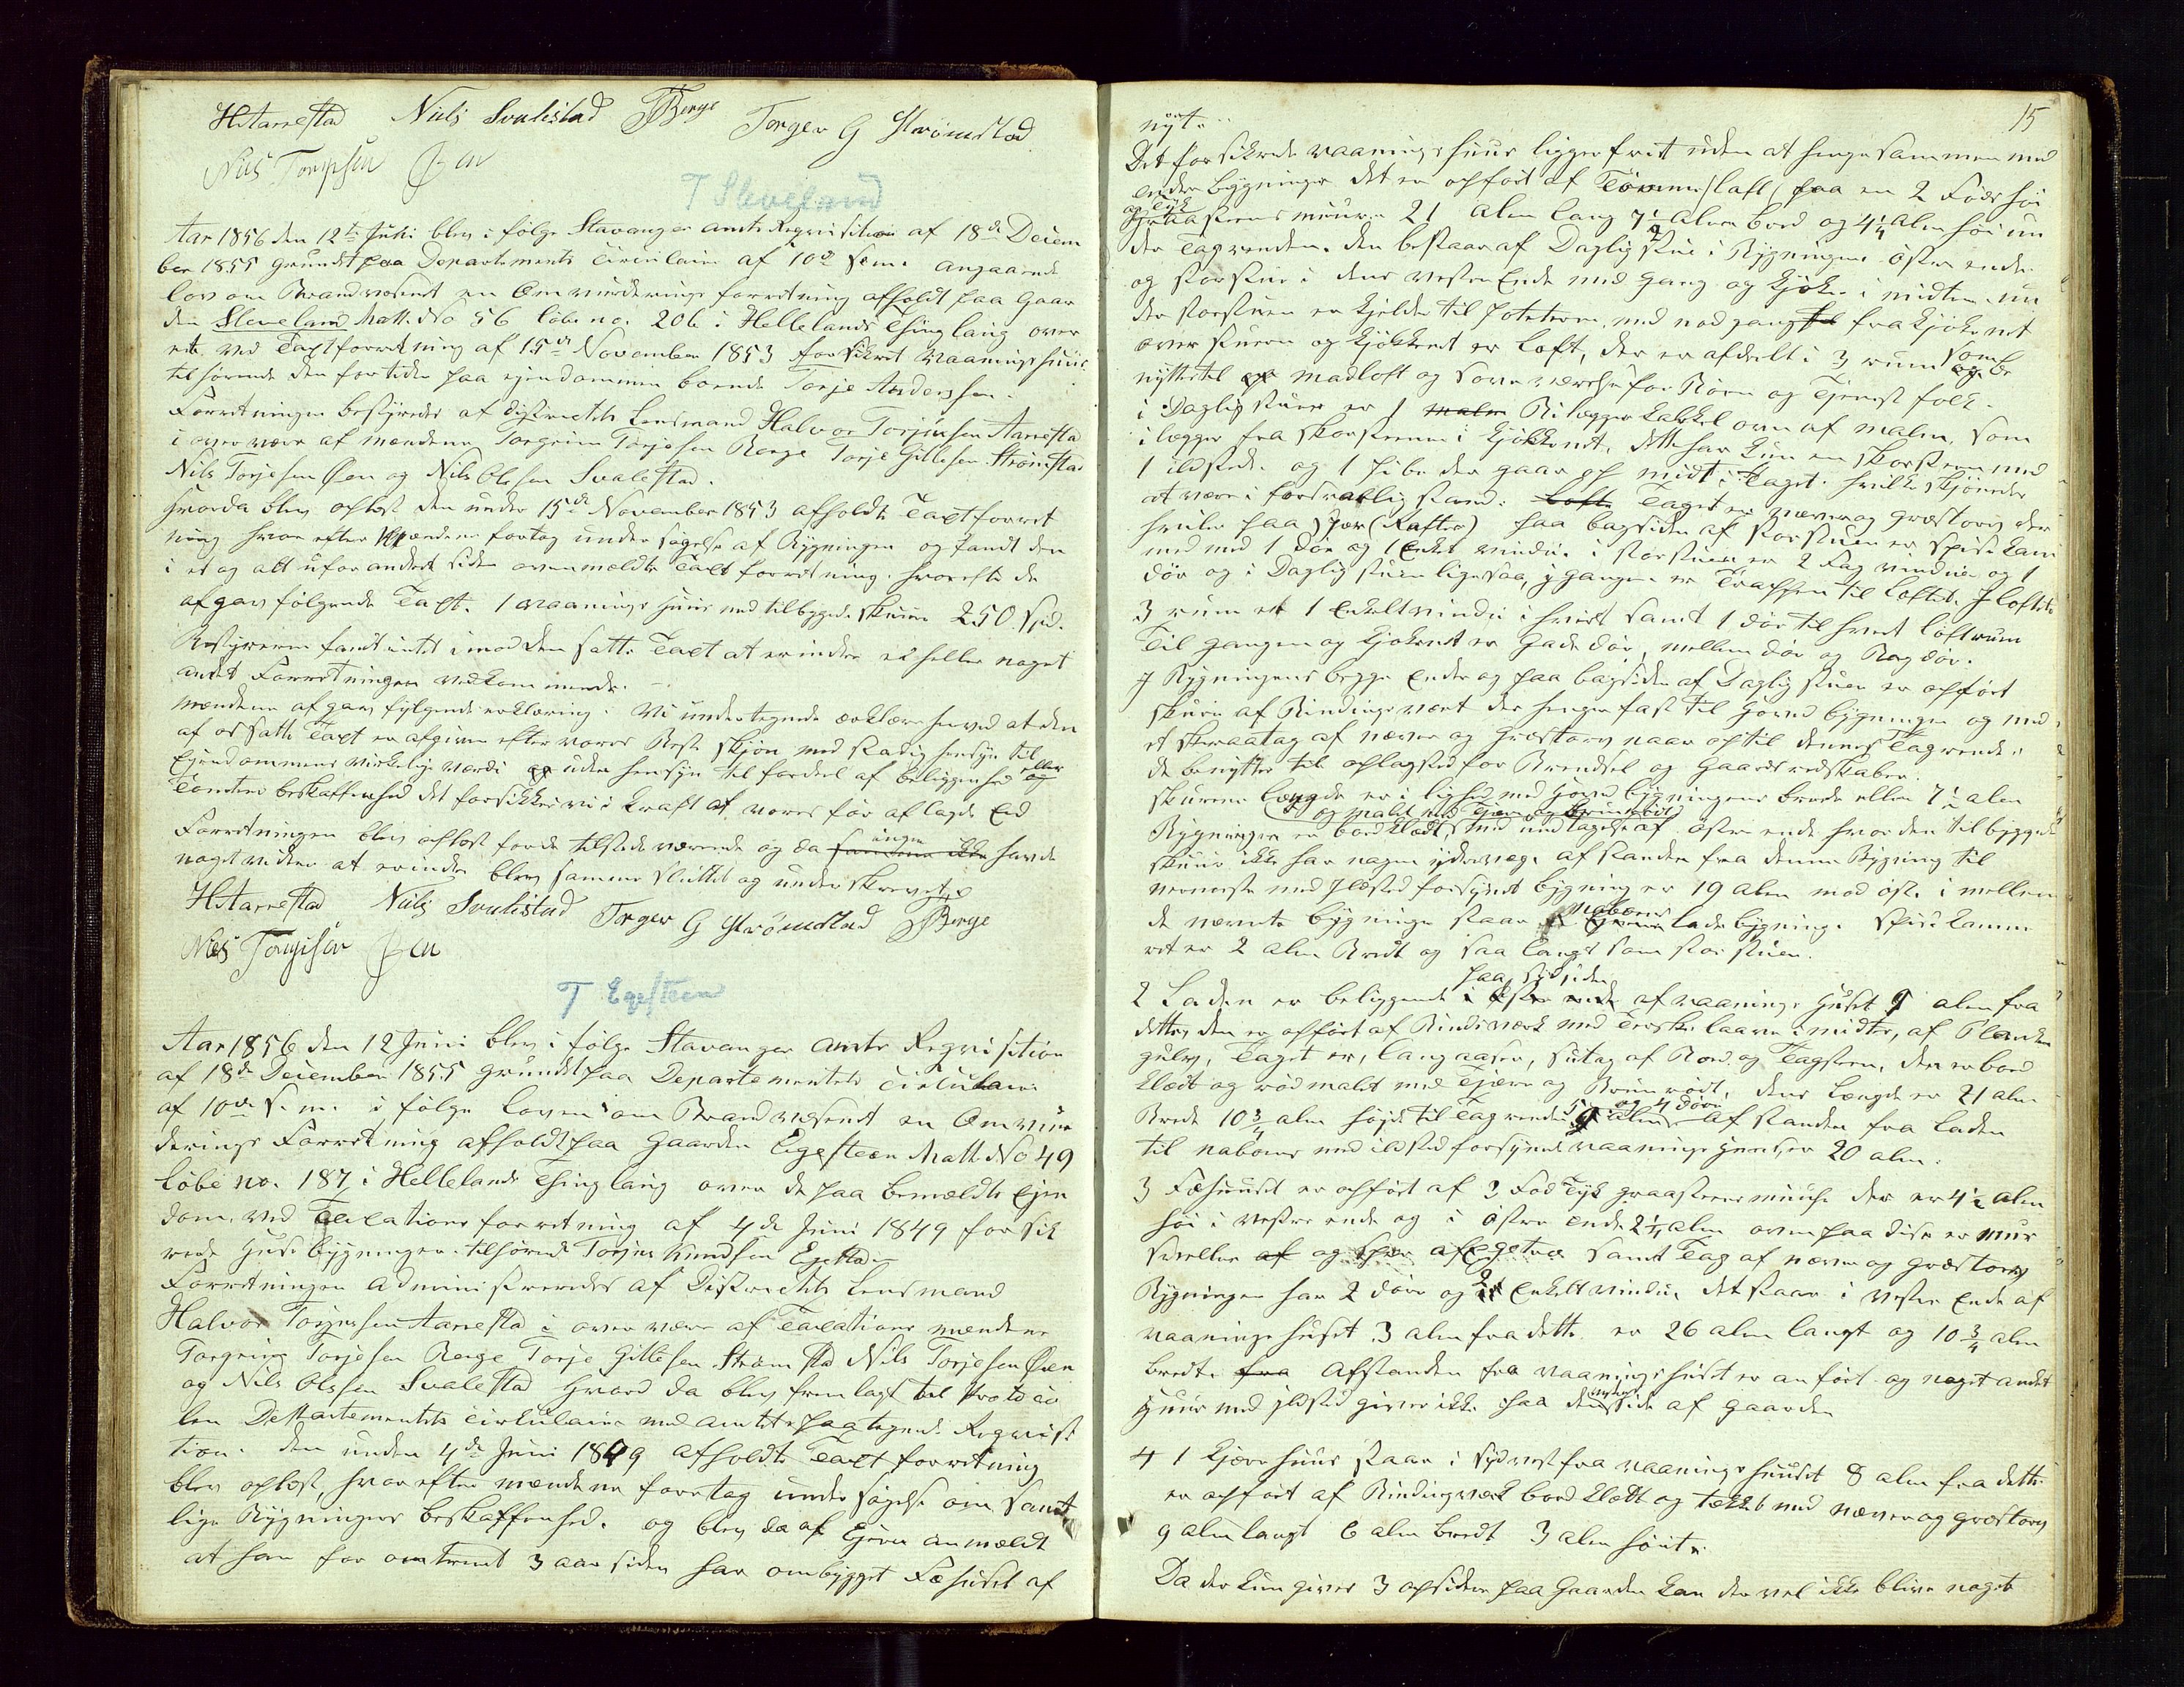 HAarrestad Nils Svalestad TBerge Torger G Strømstad
Nils Torgersen Øen
T Sleveland
Aar 1856 den 12te Juni blev i følge Stavanger Amts Reqvisition af 18de Decem
ber 1855 grundet paa Departements Circulaire af 10de s.m. angaaende
lov om Brandvæsenet en Omvurderings forretning afholdt paa Gaar
den Sleveland Matt. No 56 løbe no. 206 i Hellelands Thinglaug over
ete ved Taxtforretning af 15de November 1853 forsikret Vaaningshuus
tilhørende den for tiden paa ejendommen boende Torje Andersen.
Forretningen bestyredes af districtets Lensmand Halvor Torjusen Aarrestad
i overvære af mændene Torgrim Torjesen Berge Torje Gittesen Strømstad
Nils Torjesen Øen og Nils Olsen Svalestad.
Hvorda blev oplæst den under 15de November 1853 afholdte Taxtforret
ning hvorefter Mændene foretog undersøgelse af Bygningen og fandt den
i et og alt uforandret siden ovenmældte Taxt forretning. hvorefter de
afgav følgende Taxt. 1 vaanings huus med tilbyggede skuure 250 Spd.
Bestyreren fandt intet imod den satte Taxt at erindre ei heller noget
andet Forretningen vedkommende.
Mændene afgav følgende erklæring: Vi undertegnede erklære herved at den
af os satte Taxt er afgiven efter vores Beste skjøn med stadig hensyn til
Ejendommens virkelige værdi og uden hensyn til fordel af beliggenhed eller
Tomtens beskaffenhed det forsikkrer vi i kraft af vores før aflagte Eed
Forretningen blev oplæst for de tilstedeværende og da ingen havde
noget videre at erindre blev samme sluttet og underskrevet
HAarrestad Nils Svalestad Torger G Strømstad TBerge
Nils Torgersen Øen
T Egesteen
Aar 1856 den 12 Juni blev i følge Stavanger Amts Reqvisition
af 18de December 1855 grundet paa Departementets Cirkulaire
af 10de s.m. i følge loven om Brandvæsenet en Omvur
derings Forretning afholdt paa Gaarden Egesteen Matt. No 49
Løbe no. 187 i Hellelands Thinglaug over de paa bemældte Ejen
dom, ved Taxations forretning af 4de Juni 1849 forsik
rede Huse bygninger tilhørende Torjus Knudsen Egesteen
Forretningen administreredes af Districtets Lensmand
Halvor Torjussen Aarrestad i overvære af Taxations mændene
Torgrim Torjesen Berge Torje Gittesen Strømstad Nils Torjesen Øen
og Nils Olsen Svalestad Hvord da blev fremlagt til Protocol
len Departementets Cirkulaire med Amtets paategnede Reqvisi
tion. den under 4de Juni 1849 afholdte Taxt forretning
blev oplæst, hvorefter mændene foretog undersøgelse om samt
lige Bygningers beskaffenhed. og blev da af Ejeren anmældt
at han for omtrent 3 aar siden har ombygget Fæhuset af
15
nyt.
Det forsikrede vaanings huus ligger frit uden at hænge sammen med
andre bygninger det er opført af Tømmer (laft) paa en 2 Fods høi
og tyk
graasteens muur 21 Alen lang 7½ Alen bred og 4¼ Alen høi un
der Tagrenden. den bestaar af Daglig stue i Bygningens østre ende
og storstue i dens vestre Ende med gang og kjøken i midten. un
der storstuen er kjelder til poteterne, med nedgang fra kjøkenet
over stuerne og kjøkkenet er Loft, der er afdeelt i 3 rum som be
nyttes til madloft og sove værelse for Børn og Tjenest folk.
i Daglig stuen er 1 Bilegger kakkel ovn af malm, som
ilegges fra skorstenen i kjøkkenet, dette har kun en skorsteen med
1 ildsted og 1 pibe der gaar op midt i Taget. hvilke skjønnedes
at være i forsvarlig stand. Taget er næver og græstorv der
hviler paa Spær (Rafter) paa bagsiden af storstuen er spise kam
med med 1 dør og 1 Enkelt vindue. i storstuen er 2 Fag vinduer og 1
dør og i Dagligstuen ligesaa, i gangen er Trappen til loftet. I loftets
3 rum er 1 Enkelt vindue i hvert samt 1 dør til hvert loftrum
Til gangen og kjøkenet er Gade dør, mellem dør og Bag dør.
I Bygningens begge Ender og paa bagsiden af Daglig stuen er opført
skure af Bindings værk der henger fast til Hoved bygningen og med
et skraatag af næver og græstorv naar op til dennes Tagrende.
de benyttes til oplagsted for Brendsel og Gaards redskaber.
skurenes længde er i lighed med Hoved bygningens bredde eller 7½ alen
og malet med Tjære og Bruunrødt
Bygningen er bordklædt, med undtagelse af østre ende hvor den tilbyggede
skuur ikke har nogen ydervæg. afstanden fra denne Bygning til
nermeste med Ildsted forsynet bygning er 19 Alen mod øst. i mellem
de nævnte bygninger staar Naboens lade bygning. Spise kamme
ret er 2 Alen Bredt og saa langt som storstuen.
paa sydsiden
2 Laden er beliggende af vaanings Huset 9 alen fra
dette, den er opført af Bindsværk med Treske laave i midten, af Planke
gulv, Taget er, langaaser, sutag af Bord og Tagsteen, den er bord
klædt og rødmalet med Tjære og Bruunrødt, dens længde er 21 alen
Brede 10¾ alen højde til Tagrenden 5 alen og 4 døre. Afstanden fra laden
til naboens med ildsted forsynede vaanings Huus, er 20 alen.
3 Fæhuuset er opført af 2 Fod tyk graasteens muur der er 4½ alen
høi i vestre ende og i østre ende 2¼ alen oven paa disse er muur
sviller og spær af egetræ samt Tag af næver og græstorv
Bygningen har 2 døre og 2 enkelt vindue, det staar i vestre Ende af
vaanings huset 3 alen fra dette er 26 alen langt og 10¾ alen
bredt. Afstanden fra vaaningshuset er anført og noget andet
Huus med ildsted gives ikke paa denne side af gaarden
4 1 kjøre huus staar i Sydvest fra vaanings huuset 8 alen fra dette
er opført af Bindingværk bord klædt og tækket med næver og græstorv
9 alen langt 6 alen bredt 3 alen høit.
Da der kun gives 3 opsidere paa Gaarden kan der vel ikke blive noget